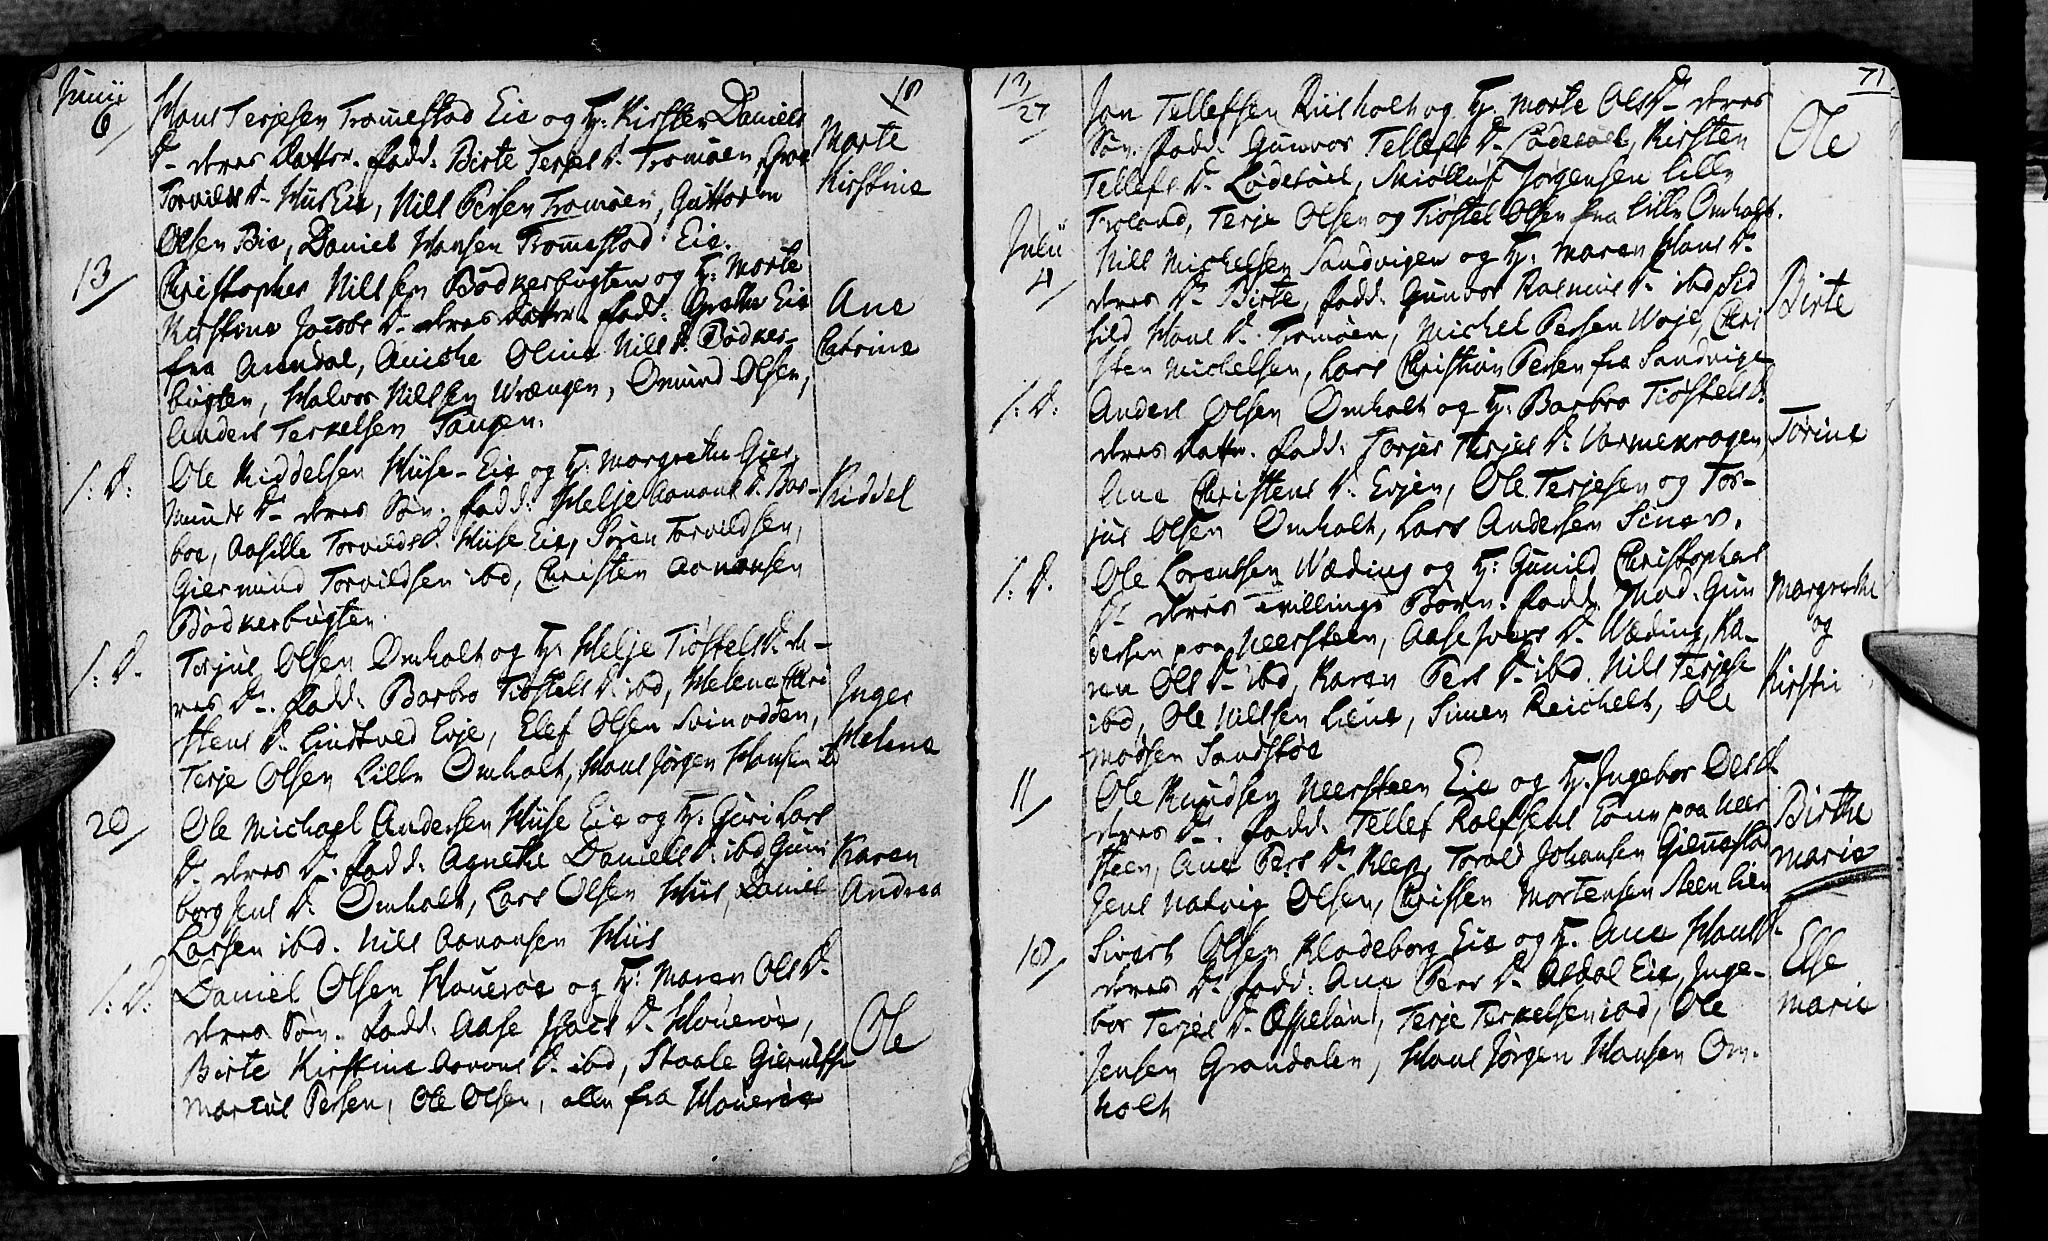 Junii
6
18
Hans Terjesen Tromestad Eie og H: Kirsten Daniels
D- deres Datter. fadd: Birte Terjes D. Tromøen, Groe
Torvilds D- Huus Eie, Nills Persen Tromøen, Guttorm
Olsen Bie, Daniel Hansen Tromestad Eie.
Marte
Kirstine
13
Christopher Nillsen Bødkerbugten og H: Marte
Kirstine Jacobs D- deres Datter. fadd: Grethe Eie
fra Arendal, Anicke Olina Nills D. Bødker-
bugten, Halvor Nillsen Wrængen, Omund Olsen,
Anders Terkelsen Tangen.
Ane
Catrine
1: D:
Ole Kiddelsen Huse-Eie og H: Margrethe Gier
munds D- deres Søn. fadd: Helje Aanons D. Bar-
boe, Aasille Torvilds D. Huse Eie, Søren Torvildsen,
Giermund Torvildsen ibd, Christen Aanonsen
Bødkerbugten.
Kiddel
1: D.
Torjus Olsen Omholt og H: Helje Tiøstels D. de-
res D-. fadd: Barbro Tiøstels D. ibd, Helena Chri
stens D. Lindtved Evje, Elef Olsen Svinodden,
Terje Olsen Lille Omholt, Hans Jørgen Hansen ib
Inger
Helene
20
Ole Michael Andersen Huse Eie og H: Guri Lars
D. deres D-. fadd: Agnethe Daniels D. ibd, Guni
borg Jens D. Omholt, Lars Olsen Huus, Daniel
Larsen ibd. Nills Aanonsen Huus
Karen
Andrea
1: D:
Daniel Olsen Houerøe og H: Maren Ols D.
deres Søn. fadd: Aase Isacs D. Houerøe,
Birte Kirstine Aanons D. ibd, Staale Gierulfs
Martus Persen, Ole Olsen, alle fra Houerøe
Ole
71.
27
Jon Tellefsen Riisholt og H: Marte Ols D- deres
Søn. fadd: Gunvor Tellefs D- Lødesøel, Kirsten
Tellefs D. Lødesøel, Skiølluf Jørgensen lille
Froland, Terje Olsen og Tiøstel Olsen fra lille Omholt.
Ole
Julii
4
Nills Michelsen Sandvigen og H: Maren Hans D-
deres D- Birte, fadd: Gunvor Rasmus D- ibd, Sid
seld Hans D- Tromøen, Michel Persen Woje, Chri
sten Michelsen, Lars Christian Persen fra Sandvige
Birte
1: D:
Anders Olsen Omholt og H: Barbro Tiøstels D.
deres Datter. fadd: Torjer Terjes D. Varmekrogen,
Ane Christens D. Evjen, Ole Terjesen og Tor-
jus Olsen Omholt, Lars Andersen
Torine
1: D.
Ole Lorentsen Wæding og H: Gunild Christophers
D- deres tvillings Børn. fadd: Mad. Gun
dersen paa Neersteen, Aase Ivers D. Wæding, Ka-
ren Ols D- ibd, Karen Pers D- ibd. Nills Terjese
ibd, Ole Nillsen Læne, Simen Reichelt, Ole
Madsen Sandstøe
Margrethe
og
Kirsti
11
Ole Knudsen Neersteen Eie og H. Ingebor
deres D-. fadd: Tellef Rolfsens Kone paa Neer
steen, Ane Pers D. Klep, Torald Johansen Giennestad
Jens Natvig Olsen, Christen Mortensen Steen lien
Birthe
Marie
18
Sivert Olsen Kladeborg Eie og H. Ane Hans D.
deres D. fadd: Ane Pers D. Asdal Eie, Inge-
bor Terjes D. Espeland, Terje Terkelsen ibd, Ole
Jensen Grandalen, Hans Jørgen Hansen Om-
holt
Else
Marie